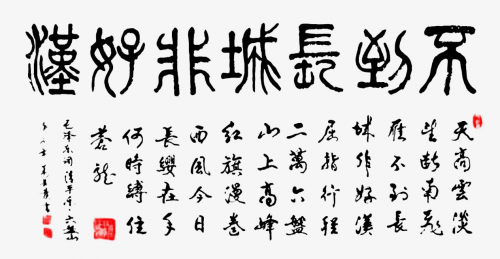 不到長城非好漢
天高雲淡
望斷南飛
雁不到長
城非好漢
屈指行程
二萬六盤
山上高峰
紅旗漫卷
西風今日
長纓在手
何時縛住
蒼龍
毛澤東詞清平樂六盤山